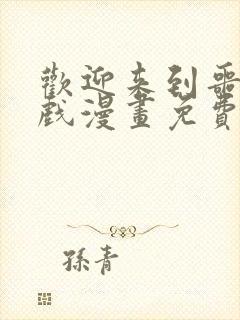 歡迎来到噩
戲漫畫免費
孫青